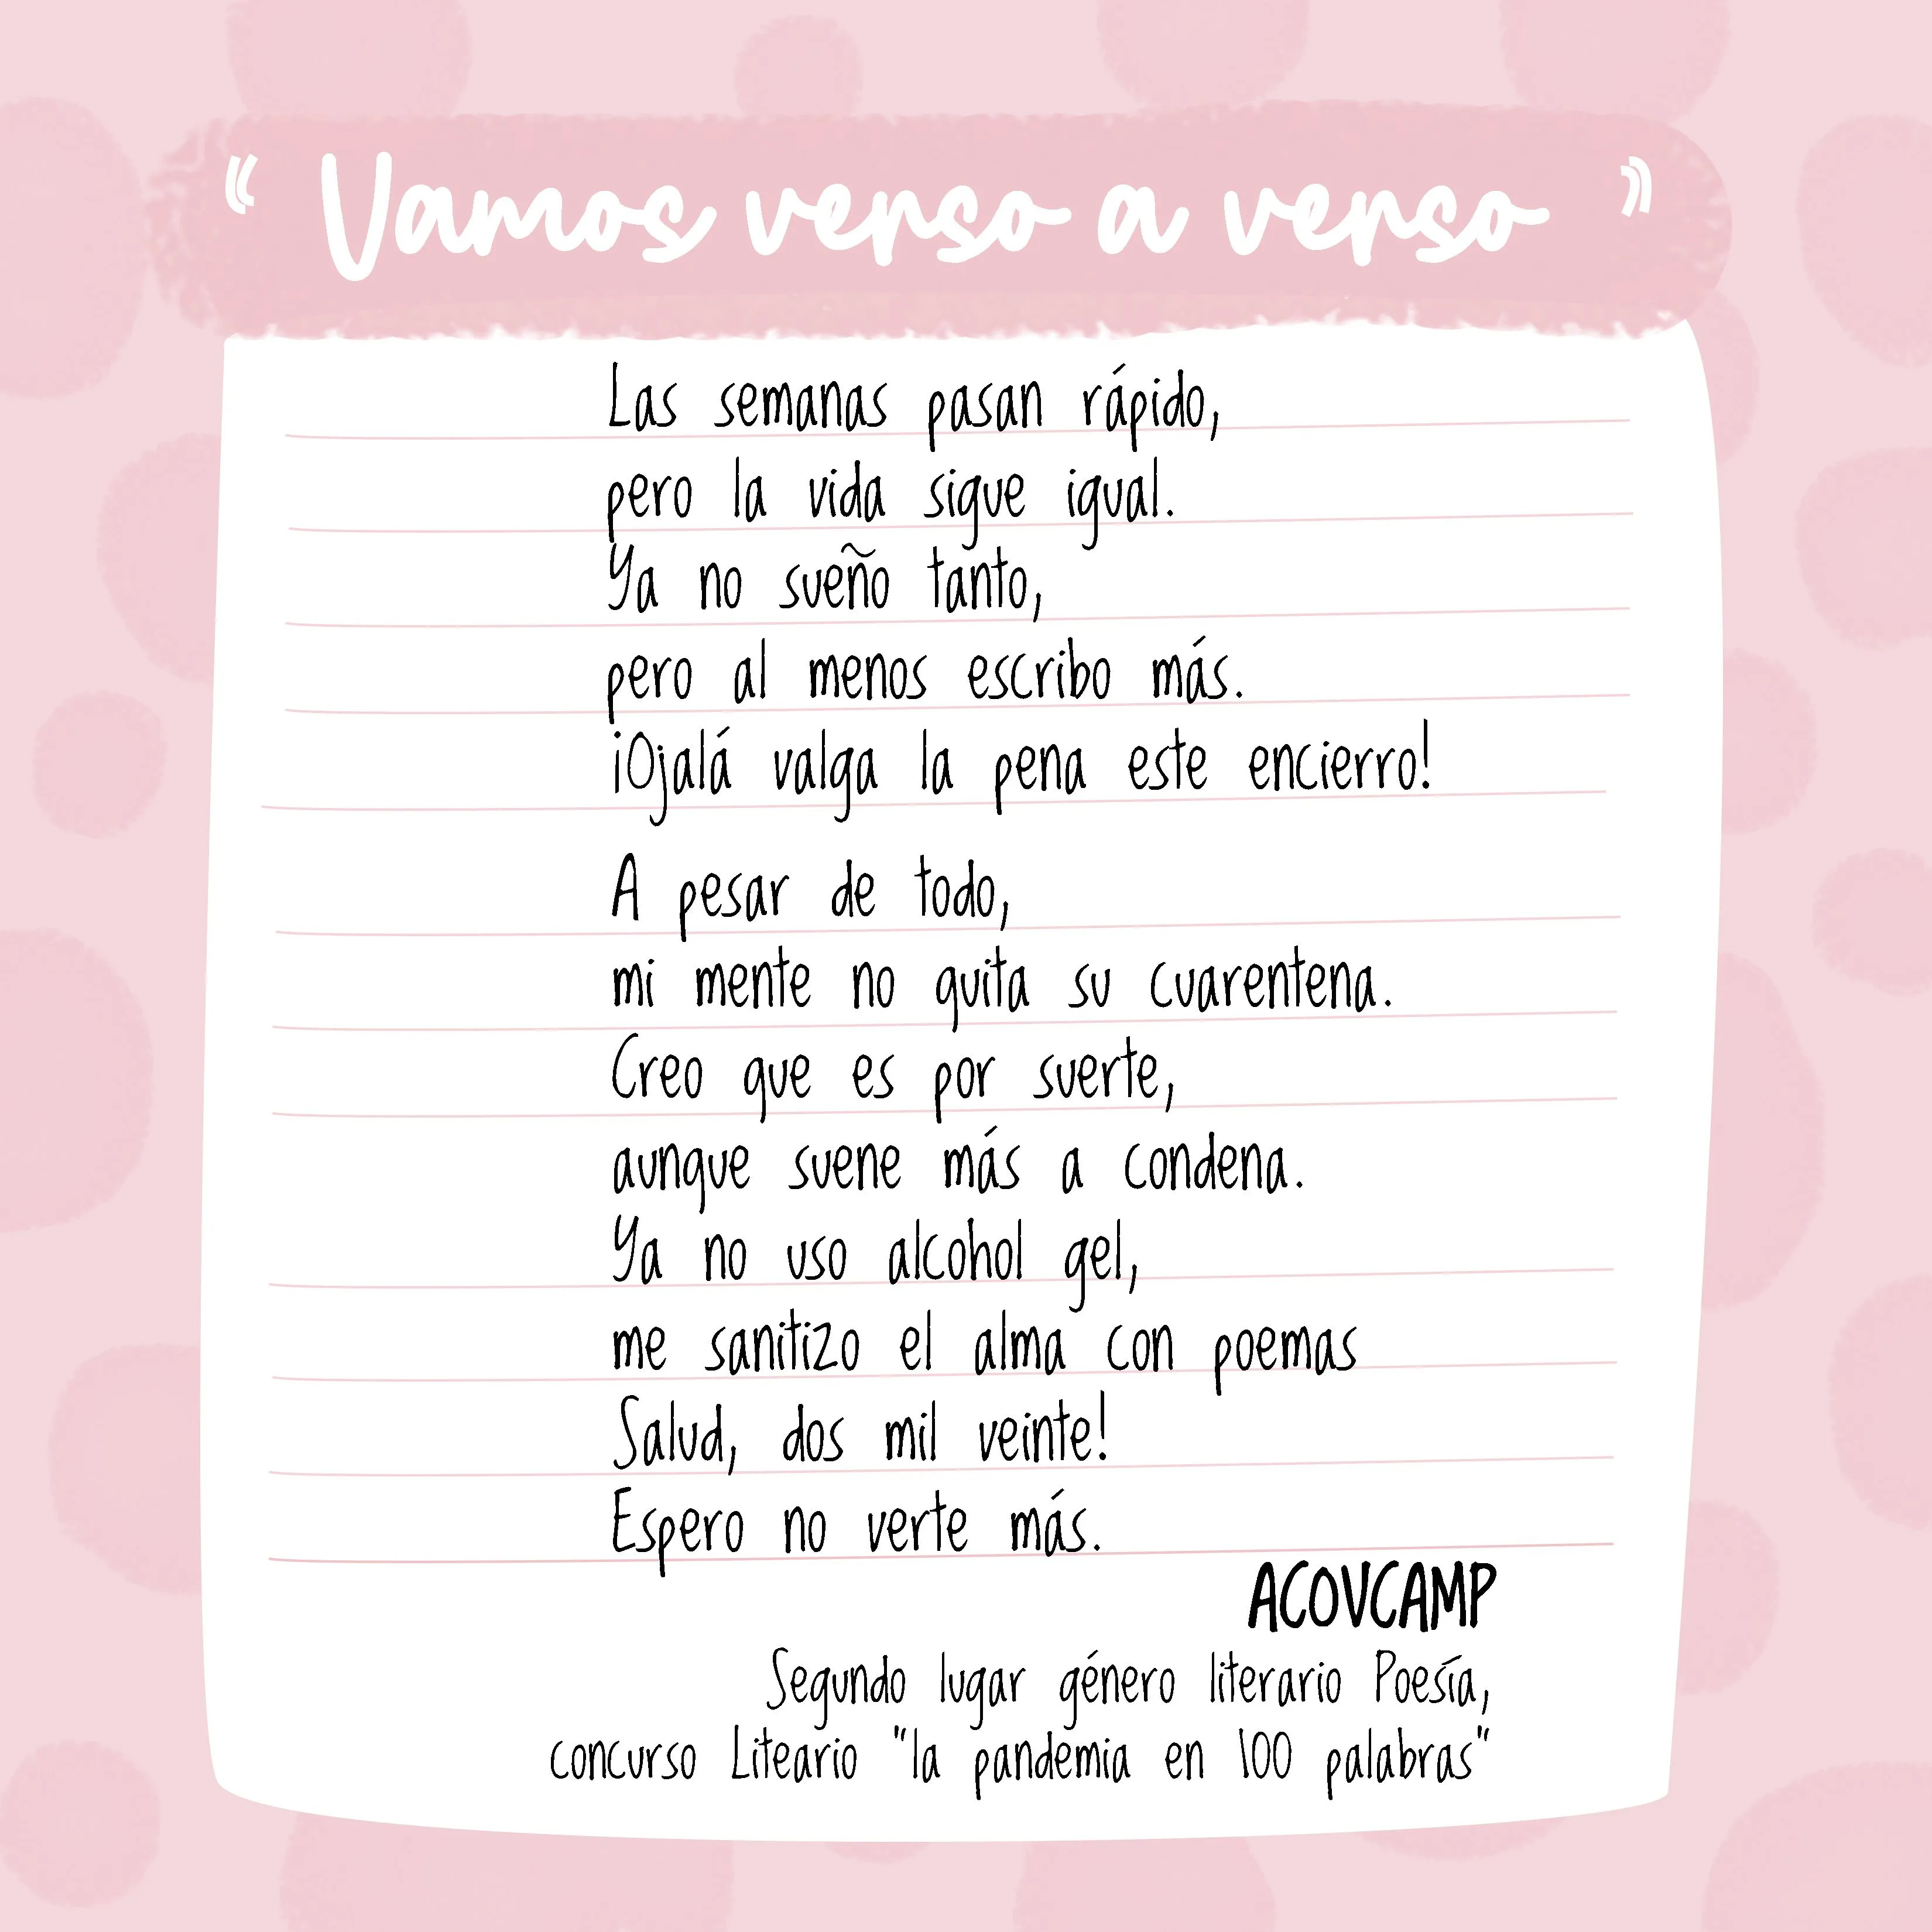 " Vamos verso a verso "
Las semanas pasan rápido,
pero la vida sigue igual.
Ya no sueño tanto,
pero al menos escribo más.
¡Ojalá valga la pena este encierro!
A pesar de todo,
mi mente no quita su cuarentena.
Creo que es por suerte,
aunque suene más a condena.
Ya no uso alcohol gel,
me sanitizo el alma con poemas
Salud, dos mil veinte!
Espero no verte más.
ACOVCAMP
Segundo lugar género literario Poesía,
concurso Liteario "la pandemia en 100 palabras"